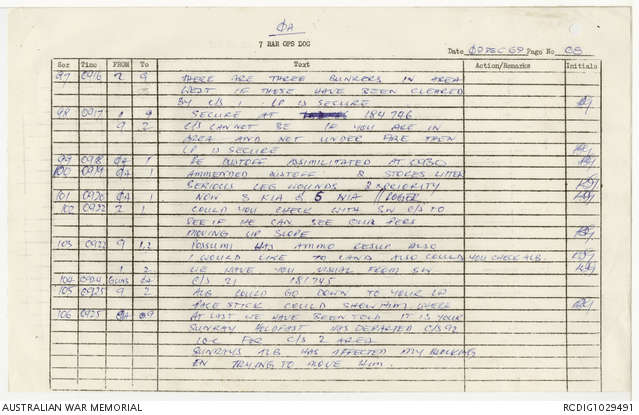 ØA
7 RAR OPS LOG
Date 09 DEC 69 Page No 08
Ser Time FROM To Text Action/Remarks Initials
97 0916 2 9 THERE ARE THREE BUNKERS IN AREA
WEST IF THESE HAVE BEEN CLEARED
BY C/S 1. LP IS SECURE
98 0917 1 9 SECURE AT 184746
9 2 C/S CANNOT BE IF YOU ARE IN
AREA AND NOT UNDER FIRE THEN
LP IS SECURE
99 0918 ØA 1 RE DUSTOFF ASSIMILITATED AT 0930
100 0919 ØA 1 AMMENDED DUSTOFF 2 STOKES LITTER
SERIOUS LEG WOUNDS 2 PRIORITY
101 0920 ØA 1 NOW 3 KIA & 5 WIA // ROGER
102 0922 2 1 COULD YOU CHECK WITH SW C/S TO
SEE IF HE CAN SEE OUR PERS
MOVING UP SLOPE
103 0922 9 1,2 POSSUM HAS AMMO RESUP ALSO
I WOULD LIKE TO LAND ALSO COULD YOU CHECK ALB.
1 2 WE HAVE YOU VISUAL FROM SW
104 0924 GUNS C/S 21 181745
105 0925 9 2 ALB COULD GO DOWN TO YOUR LP
PACE STICK COULD SHOW HIM OVER
106 0925 ØA 09 AT LAST WE HAVE BEEN TOLD IT IS YOUR
SUNRAY HOLDFAST HAS DEPARTED C/S 92
LOC FOR C/S 2 AREA
SUNRAYS ALB HAS AFFECTED MY BLOCKING
IN TRYING TO MOVE HIM.
AUSTRALIAN WAR MEMORIAL
RCDIG1029491